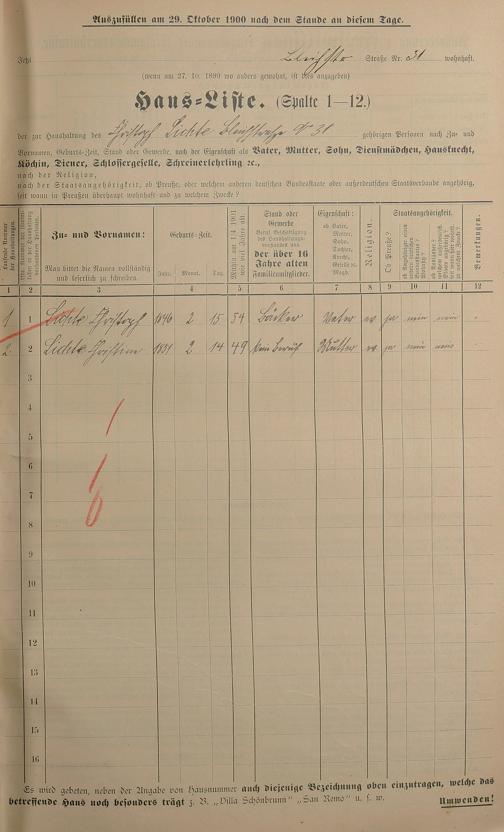 Auszufüllen am 29. Oktober 1900 nach dem Stande an diesem Tage.
Jetzt Bleichstr Straße Nr. 31 wohnhaft.
(wenn am 27. 10. 1899 wo anders gewohnt, ist dies anzugeben)
Haus-Liste. (Spalte 1—12.)
der zur Haushaltung des Christoph Lichte Bleichstraße No 31 gehörigen Personen nach Zu- und
Vornamen, Geburts-Zeit, Stand oder Gewerbe, nach der Eigenschaft als Vater, Mutter, Sohn, Dienstmädchen, Hausknecht,
Köchin, Diener, Schlossergeselle, Schreinerlehrling ꝛc.,
nach der Religion,
nach der Staatsangehörigkeit, ob Preuße, oder welchem anderen deutschen Bundesstaate oder außerdeutschen Staatsverbande angehörig,
seit wann in Preußen überhaupt wohnhaft und zu welchem Zwecke?
Zu- und Vornamen:
Man bittet die Namen vollständig
und leserlich zu schreiben.
Geburts-Zeit.
Jahr. Monat. Tag.
Stand oder
Gewerbe
der über 16
Jahre alten
Familienmitglieder.
Eigenschaft:
ob Vater,
Mutter,
Sohn,
Tochter,
Knecht,
Geselle ꝛc.
Magd.
Religion.
Staatsangehörigkeit.
Ob Preuße?
Bemerkungen.
1 2 3 4 5 6 7 8 9 10 11 12
1 1 Lichte Christoph 1846 2 15 54 Bäcker Vater ev ja nein nein
2 2 Lichte Christine 1851 2 14 49 kein Beruf Mutter ev ja nein nein
3
4
5
6
7
8
9
10
11
12
13
14
15
16
Es wird gebeten, neben der Angabe von Hausnummer auch diejenige Bezeichnung oben einzutragen, welche das
betreffende Haus noch besonders trägt z. B. „Villa Schönbrunn" „San Remo" u. s. w. Umwenden!